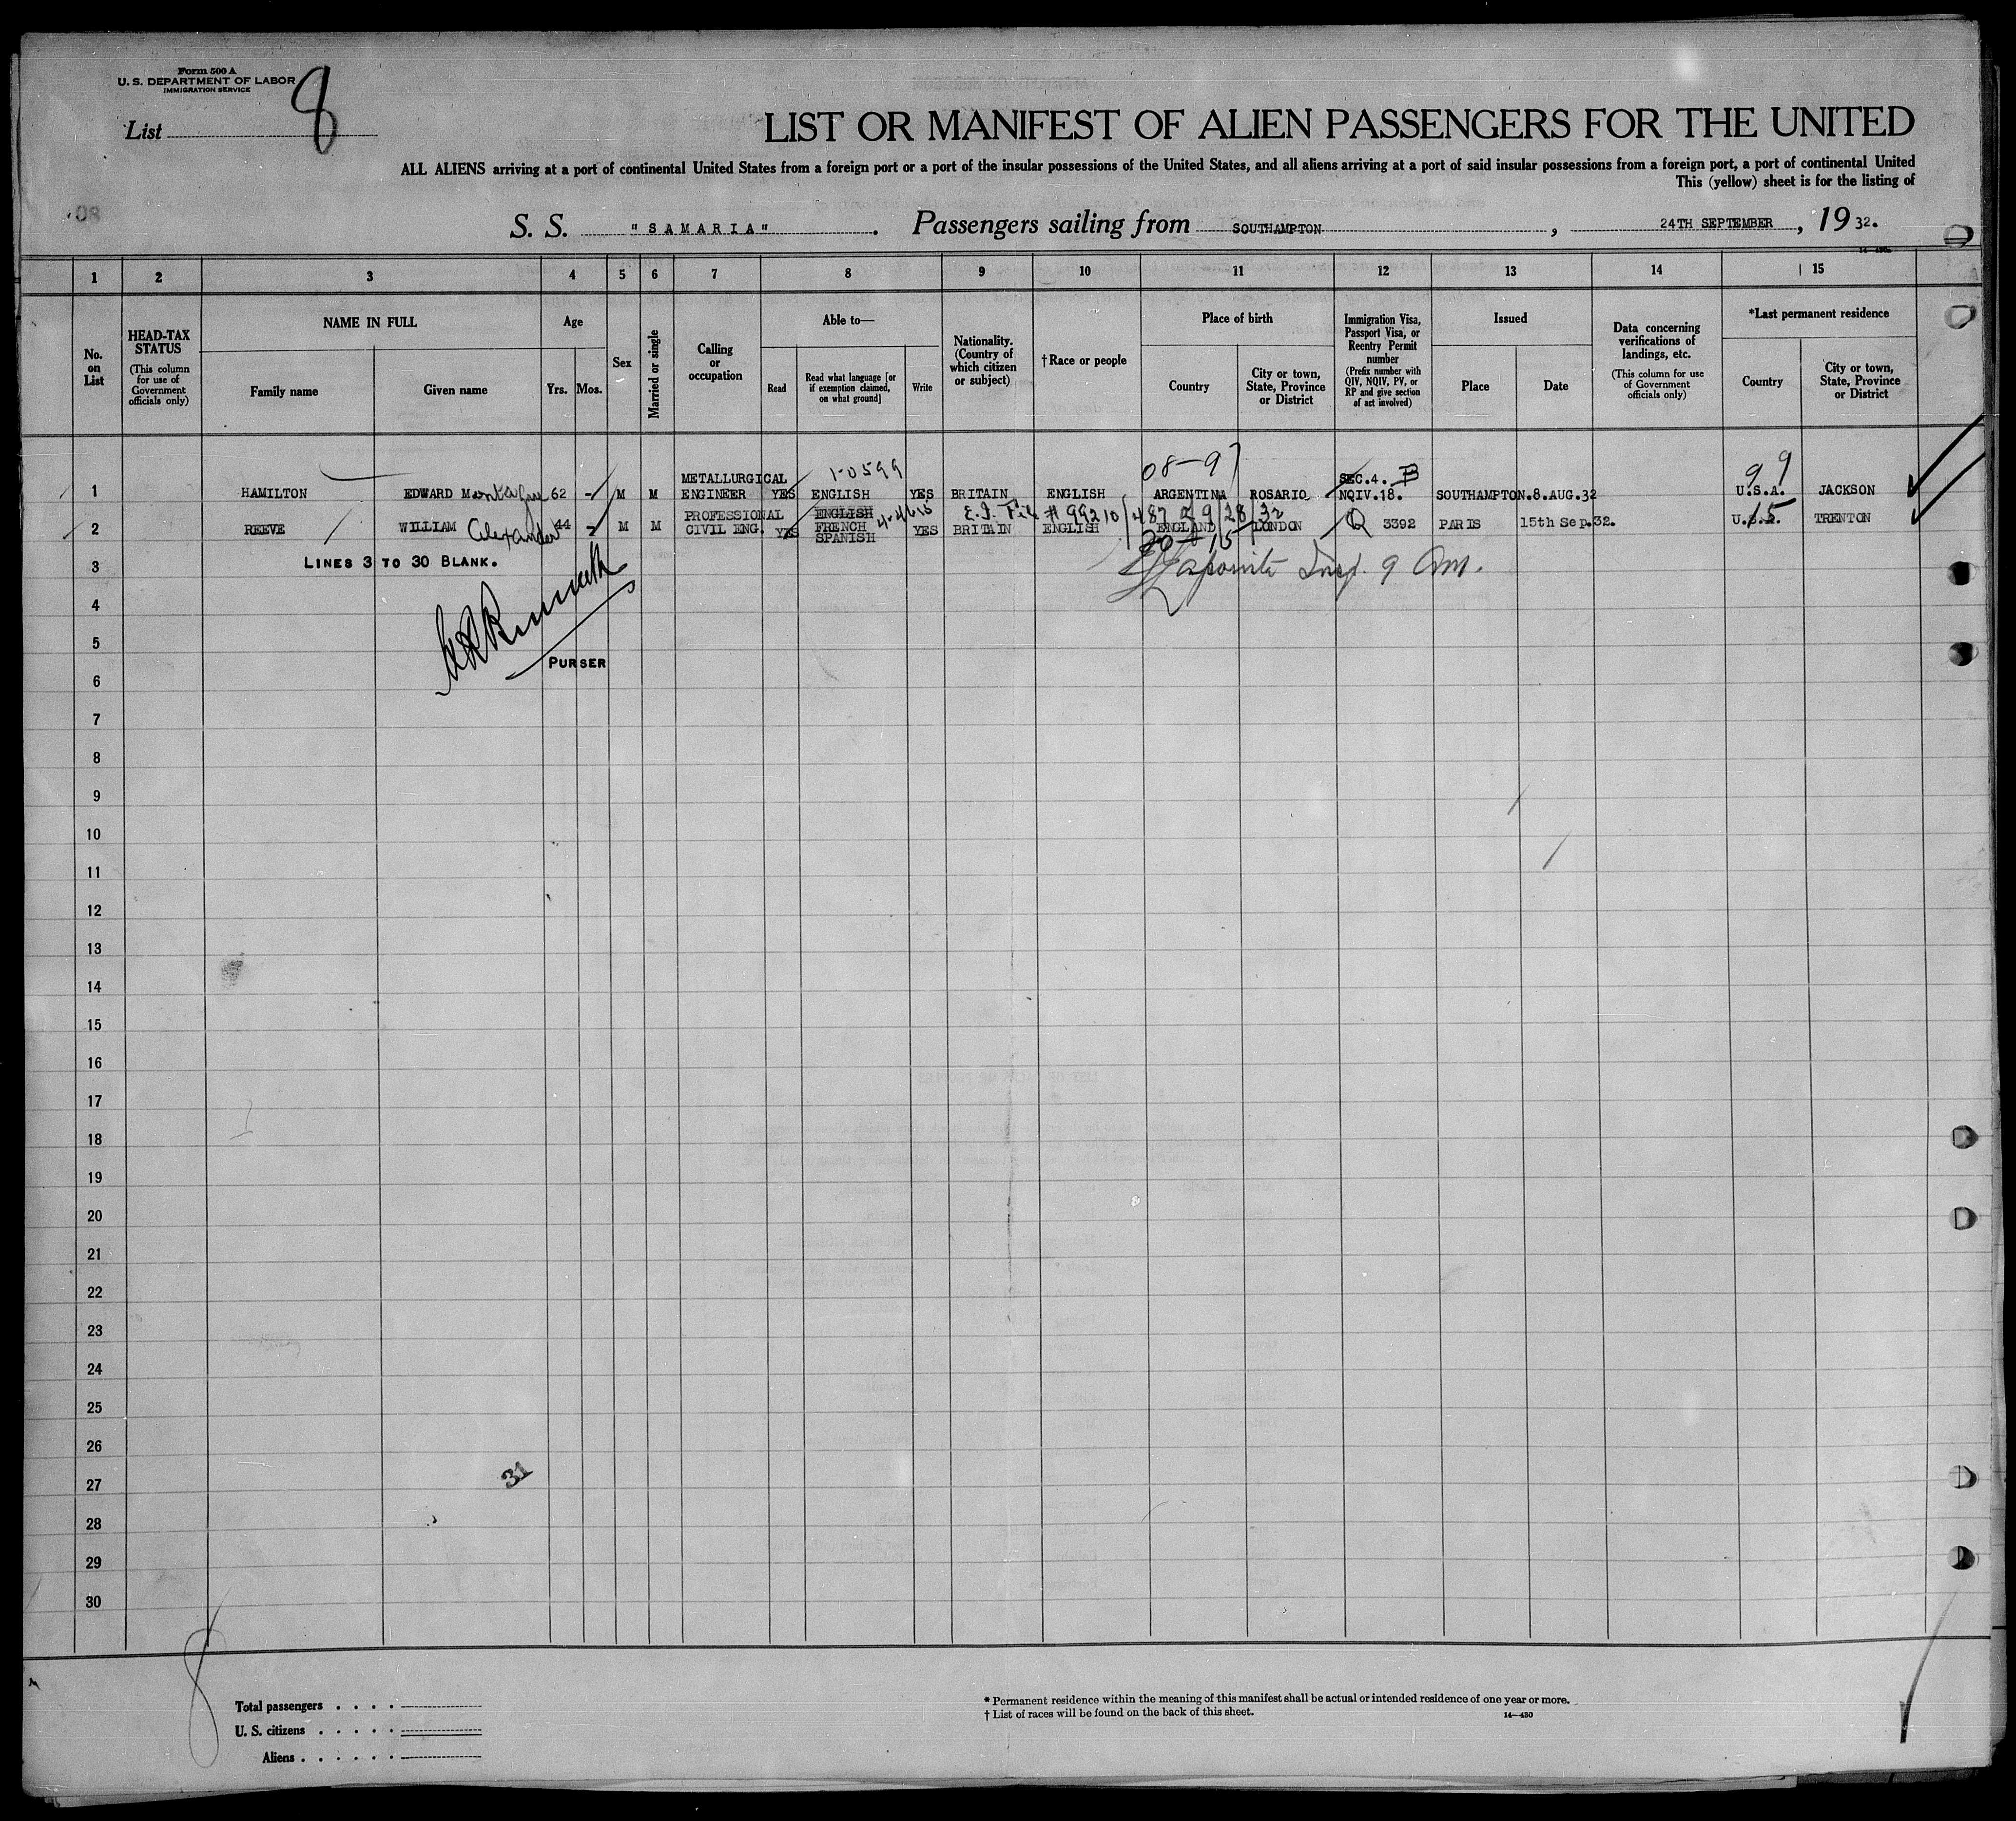 Form 500 A
U. S. DEPARTMENT OF LABOR
IMMIGRATION SERVICE
List 8
LIST OR MANIFEST OF ALIEN PASSENGERS FOR THE UNITED
ALL ALIENS arriving at a port of continental United States from a foreign port or a port of the insular possessions of the United States, and all aliens arriving at a port of said insular possessions from a foreign port, a port of continental United
This (yellow) sheet is for the listing of
08
S. S. "SAMARIA". Passengers sailing from SOUTHAMPTON, 24TH SEPTEMBER, 19 32.
1 2 3 4 5 6 7 8 9 10 11 12 13 14 15
No. on List
HEAD-TAX STATUS (This column for use of Government officials only)
NAME IN FULL
Family name
Given name
Age
Yrs.
Mos.
Sex
Married or single
Calling or occupation
Able to—
Read
Read what language [or if exemption claimed, on what ground]
Write
Nationality. (Country of which citizen or subject)
†Race or people
Place of birth
Country
City or town, State, Province or District
Immigration Visa, Passport Visa, or Reentry Permit number (Prefix number with QIV, NQIV, PV, or RP and give section of act involved)
Issued
Place
Date
Data concerning verifications of landings, etc. (This column for use of Government officials only)
*Last permanent residence
Country
City or town, State, Province or District
1-0599
08-97
99
1 HAMILTON EDWARD Montague 62 - M M METALLURGICAL ENGINEER YES ENGLISH YES BRITAIN ENGLISH ARGENTINA ROSARIO SEC.4. B NQIV.18. SOUTHAMPTON. 8.AUG.32 U.S.A. JACKSON
# 99210/487 9/28/32
2 REEVE WILLIAM Alexander 44 - M M PROFESSIONAL CIVIL ENG. YES ENGLISH FRENCH SPANISH YES BRITAIN ENGLISH ENGLAND LONDON Q 3392 PARIS 15th Sep.32. U.S.A. 15 TRENTON
3 LINES 3 TO 30 BLANK.
Insp. 9 am.
4
5
PURSER
6
7
8
9
10
11
12
13
14
15
16
17
18
19
20
21
22
23
24
25
26
27
31
28
29
30
8
Total passengers
U. S. citizens
Aliens
* Permanent residence within the meaning of this manifest shall be actual or intended residence of one year or more.
† List of races will be found on the back of this sheet.
14—430